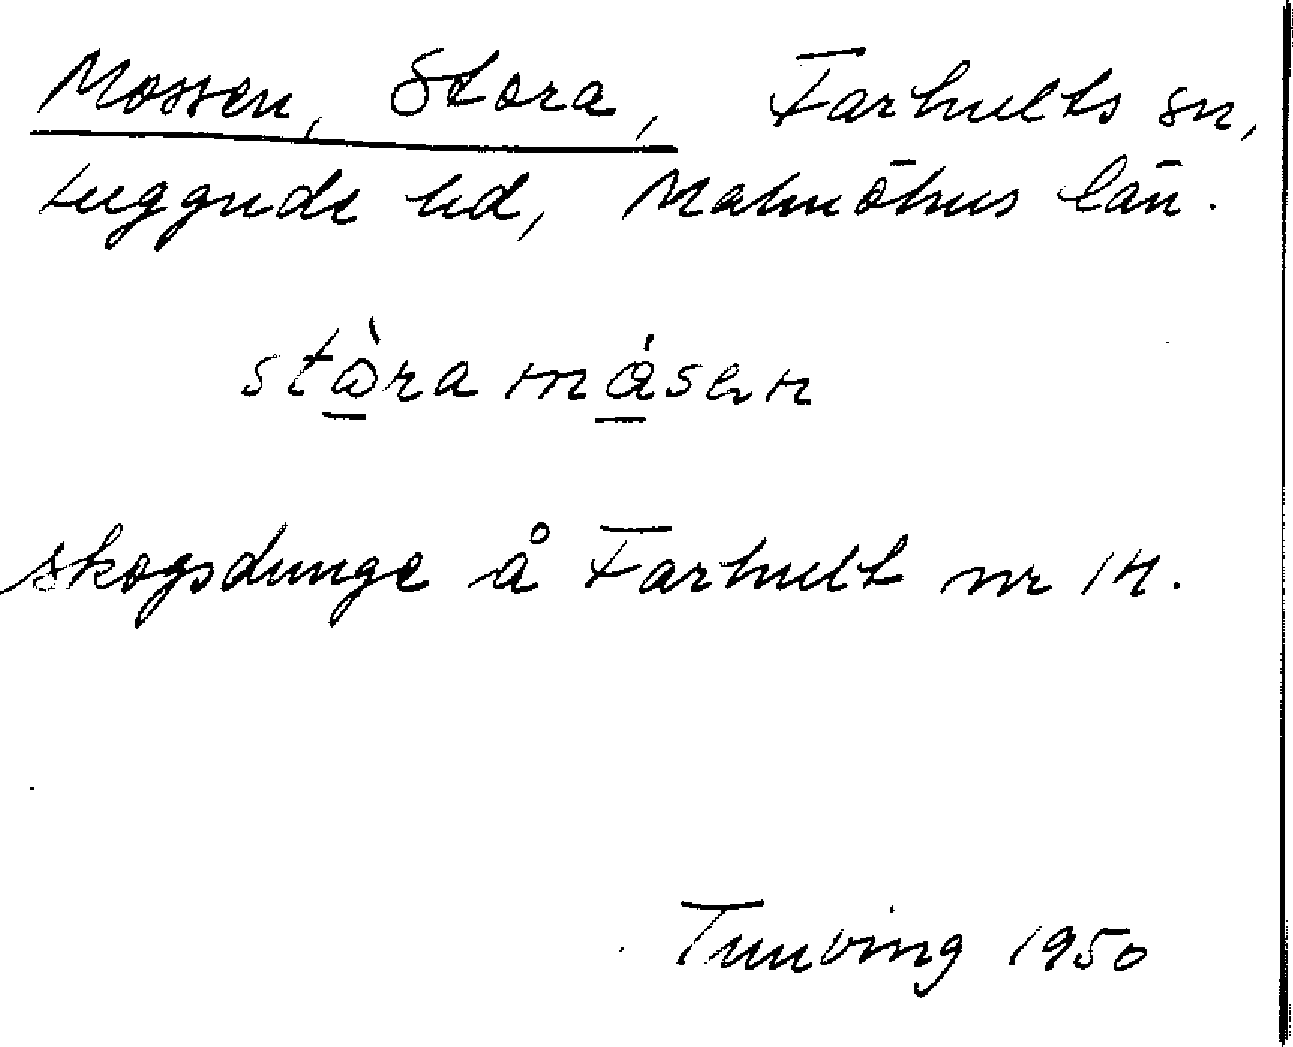 Mossen, Stora, Farhults sn,
Luggude hd, Malmöhus län.
stòra måsen
skogsdunge å Farhult nr 14.
Tuneving 1950